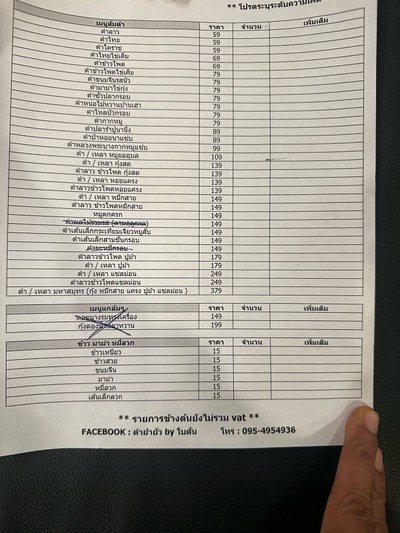 ** โปรดระบุระดับความเผ็ด
เมนูส้มตำ ราคา จำนวน เพิ่มเติม
ตำลาว 59
ตำไทย 59
ตำโคราช 59
ตำไทยไข่เค็ม 69
ตำข้าวโพด 69
ตำข้าวโพดไข่เค็ม 79
ตำขนมจีนรสนัว 79
ตำมาม่าไข่กุ้ง 79
ตำถั่วปลากรอบ 79
ตำหน่อไม้หวานป่านเฮา 79
ตำไหลบัวกรอบ 79
ตำกากหมู 79
ตำปลาร้าปูนานึ่ง 89
ตำป่าหอยนาแซ่บ 89
ตำหลวงพระบางกากหมูแซ่บ 99
ตำ / เหลา หมูยออุบล 109
ตำ / เหลา กุ้งสด 139
ตำลาว ข้าวโพด กุ้งสด 139
ตำ / เหลา หอยแครง 139
ตำลาวข้าวโพดหอยแครง 139
ตำ / เหลา หมึกสาย 149
ตำลาว ข้าวโพดหมึกสาย 149
หมูตกครก 149
ตำผลไม้รวมรส (ตามฤดูกาล) 149
ตำเส้นเล็กกระเทียมเจียวหมูสับ 149
ตำเส้นเล็กสามชั้นกรอบ 149
ตำมะหมี่กรอบ 149
ตำลาวข้าวโพด ปูม้า 179
ตำ / เหลา ปูม้า 179
ตำ / เหลา แซลม่อน 249
ตำลาวข้าวโพดแซลม่อน 249
ตำ / เหลา มหาสมุทร (กุ้ง หมึกสาย แครง ปูม้า แซลม่อน ) 379
เมนูแกล้มๆ ราคา จำนวน เพิ่มเติม
หอยนางรมทรงเครื่อง 149
กุ้งดอง 199
ข้าว มาม่า หมี่ลวก ราคา จำนวน เพิ่มเติม
ข้าวเหนียว 15
ข้าวสวย 15
ขนมจีน 15
มาม่า 15
หมี่ลวก 15
เส้นเล็กลวก 15
** รายการข้างต้นยังไม่รวม vat **
FACEBOOK : ตำยำยัว by โบตั๋น โทร : 095-4954936